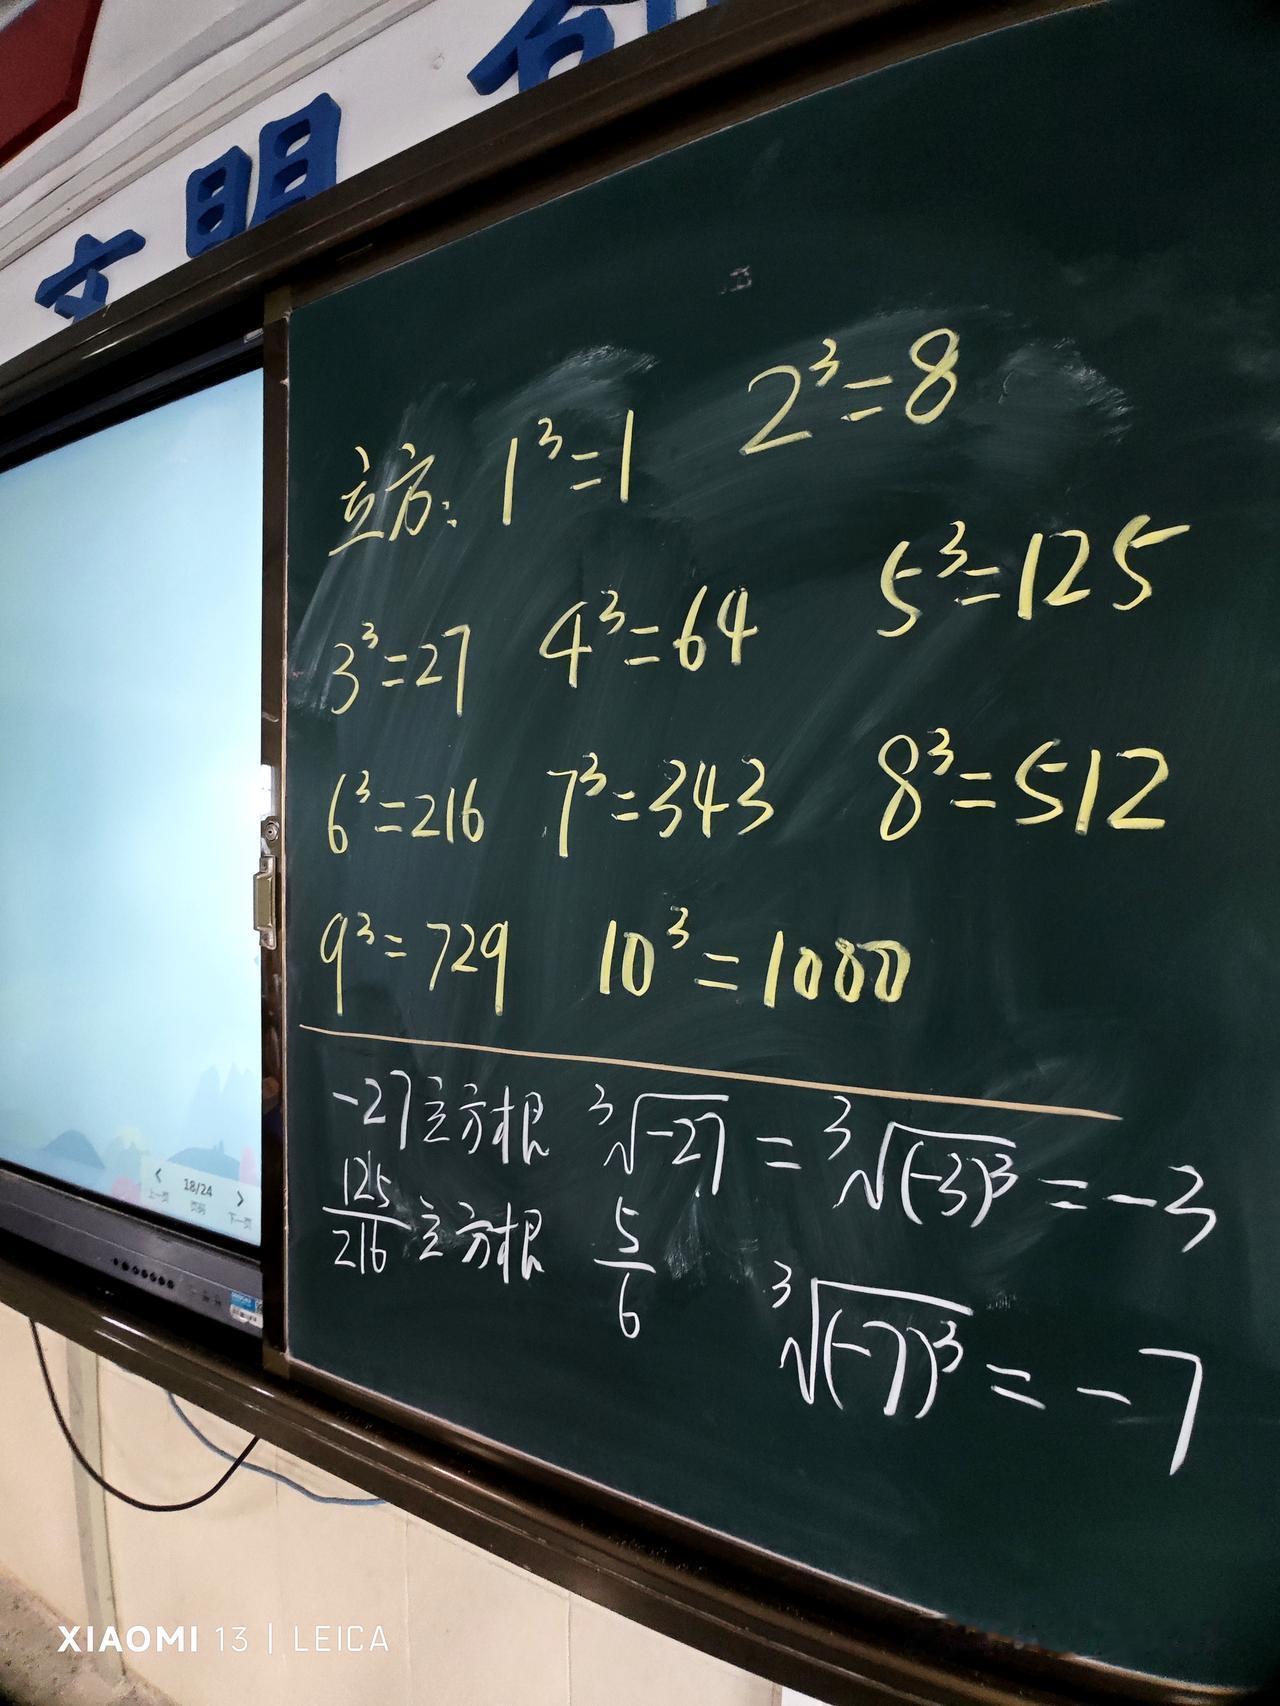 文明
立方: 1³=1 2³=8
3³=27 4³=64 5³=125
6³=216 7³=343 8³=512
9³=729 10³=1000
-27立方根 ³√-27 = ³√(-3)³ = -3
125/216 立方根 5/6
³√(-7)³ = -7
18/24
上一页 页码 下一页
XIAOMI 13 | LEICA